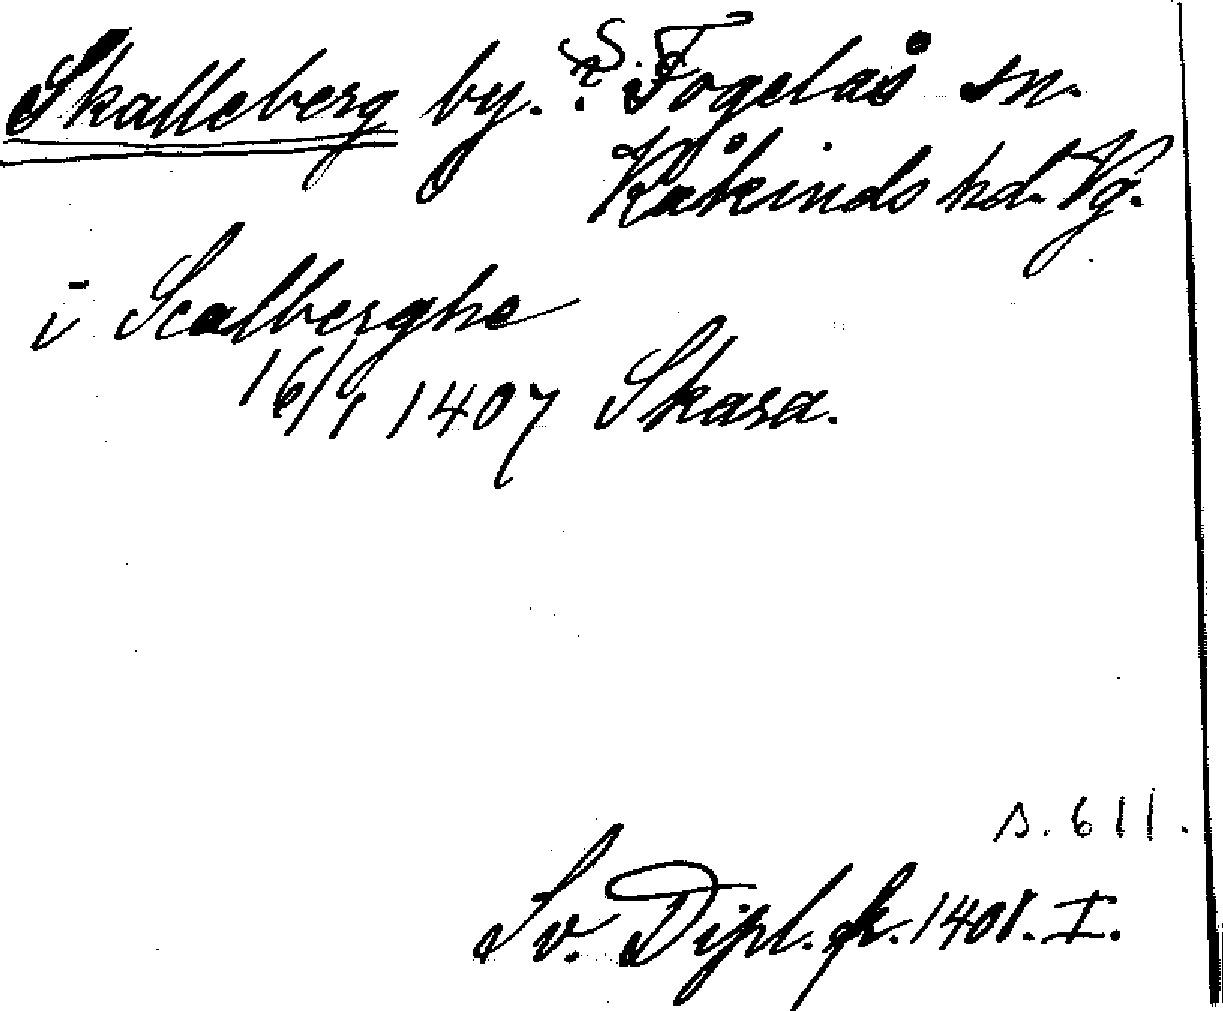 Skalleberg by. S. Fogelås sn.
Kåkinds hd. Vg.
i Scalberghe
16/9 1407 Skara.
s. 611.
Sv. Dipl. fr. 1401. I.